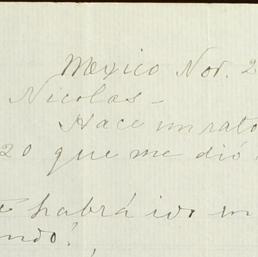 Mexico Nov. 2
Nicolas -
Hace un rato
20 que me dió
habrá ido m
ndo!